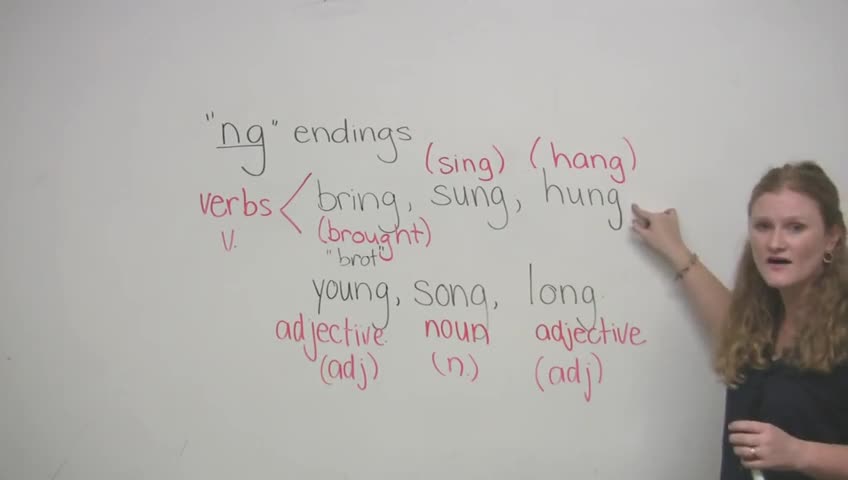 "ng" endings
(sing) (hang)
verbs < bring, sung, hung
v. (brought)
"brot"
young, song, long
adjective noun adjective
(adj) (n.) (adj)